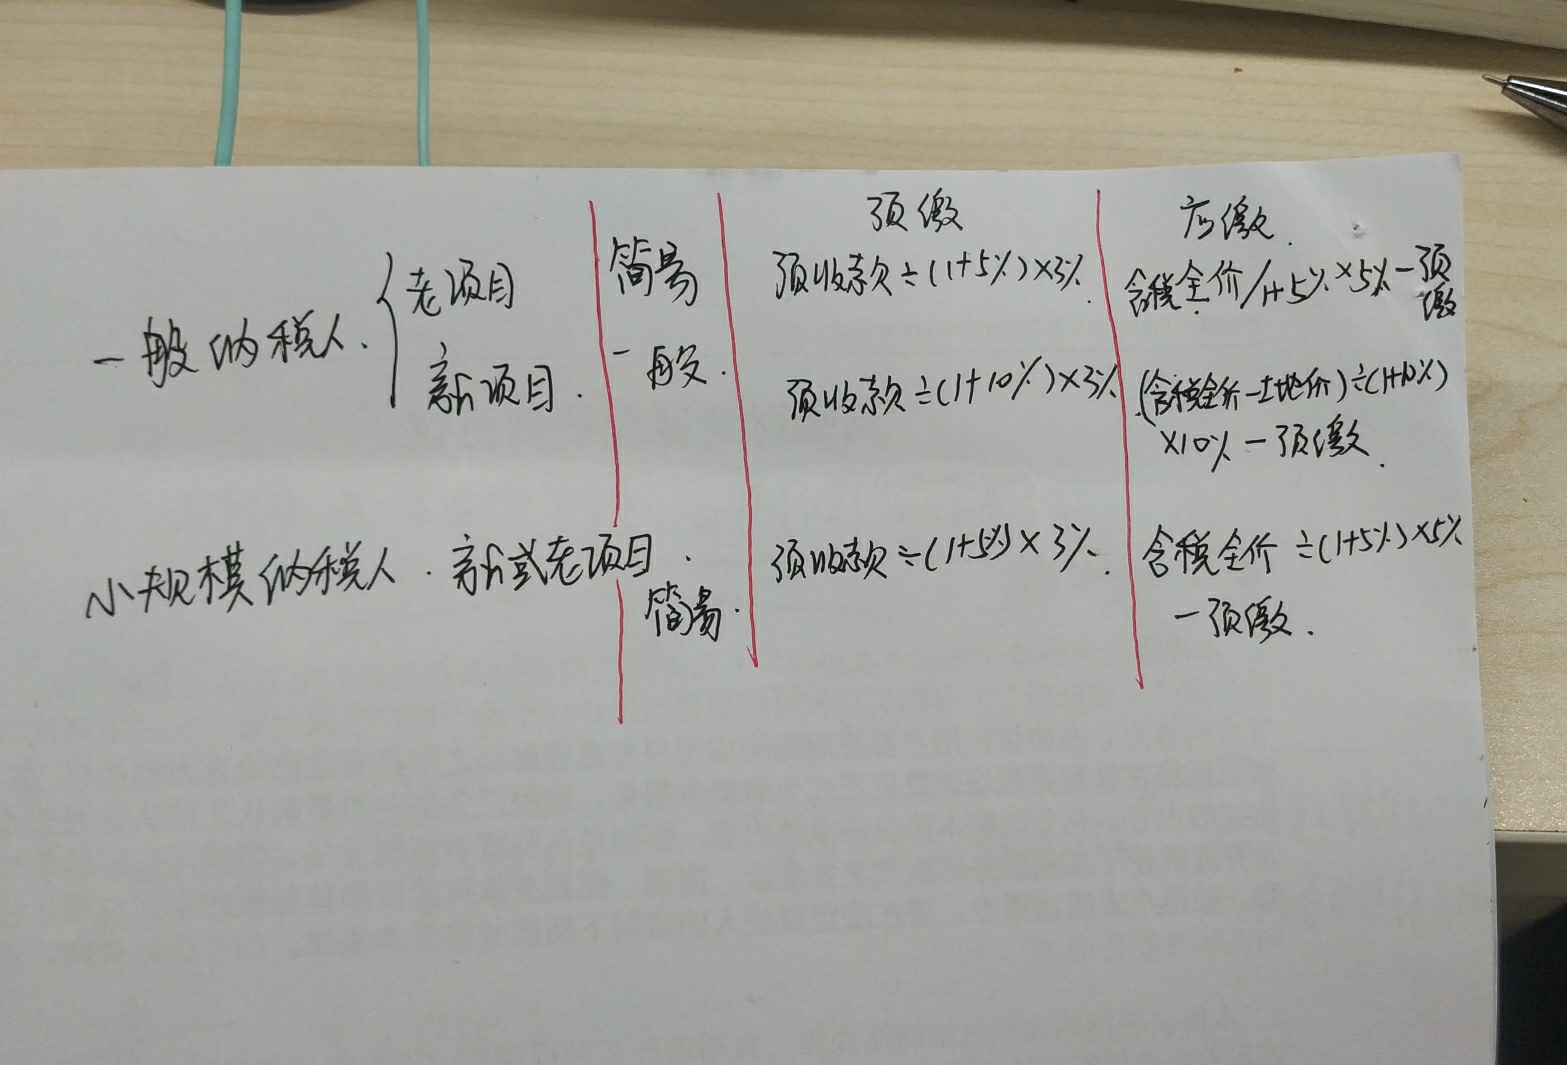 预缴 应缴.
一般纳税人. { 老项目 简易 预收款÷(1+5%)×3%. 含税全价/1+5%×5%-预缴
新项目. 一般. 预收款÷(1+10%)×3% (含税全价-土地价)÷(1+10%)
×10%-预缴.
小规模纳税人. 新或老项目. 简易. 预收款÷(1+5%)×3%. 含税全价÷(1+5%)×5%
-预缴.